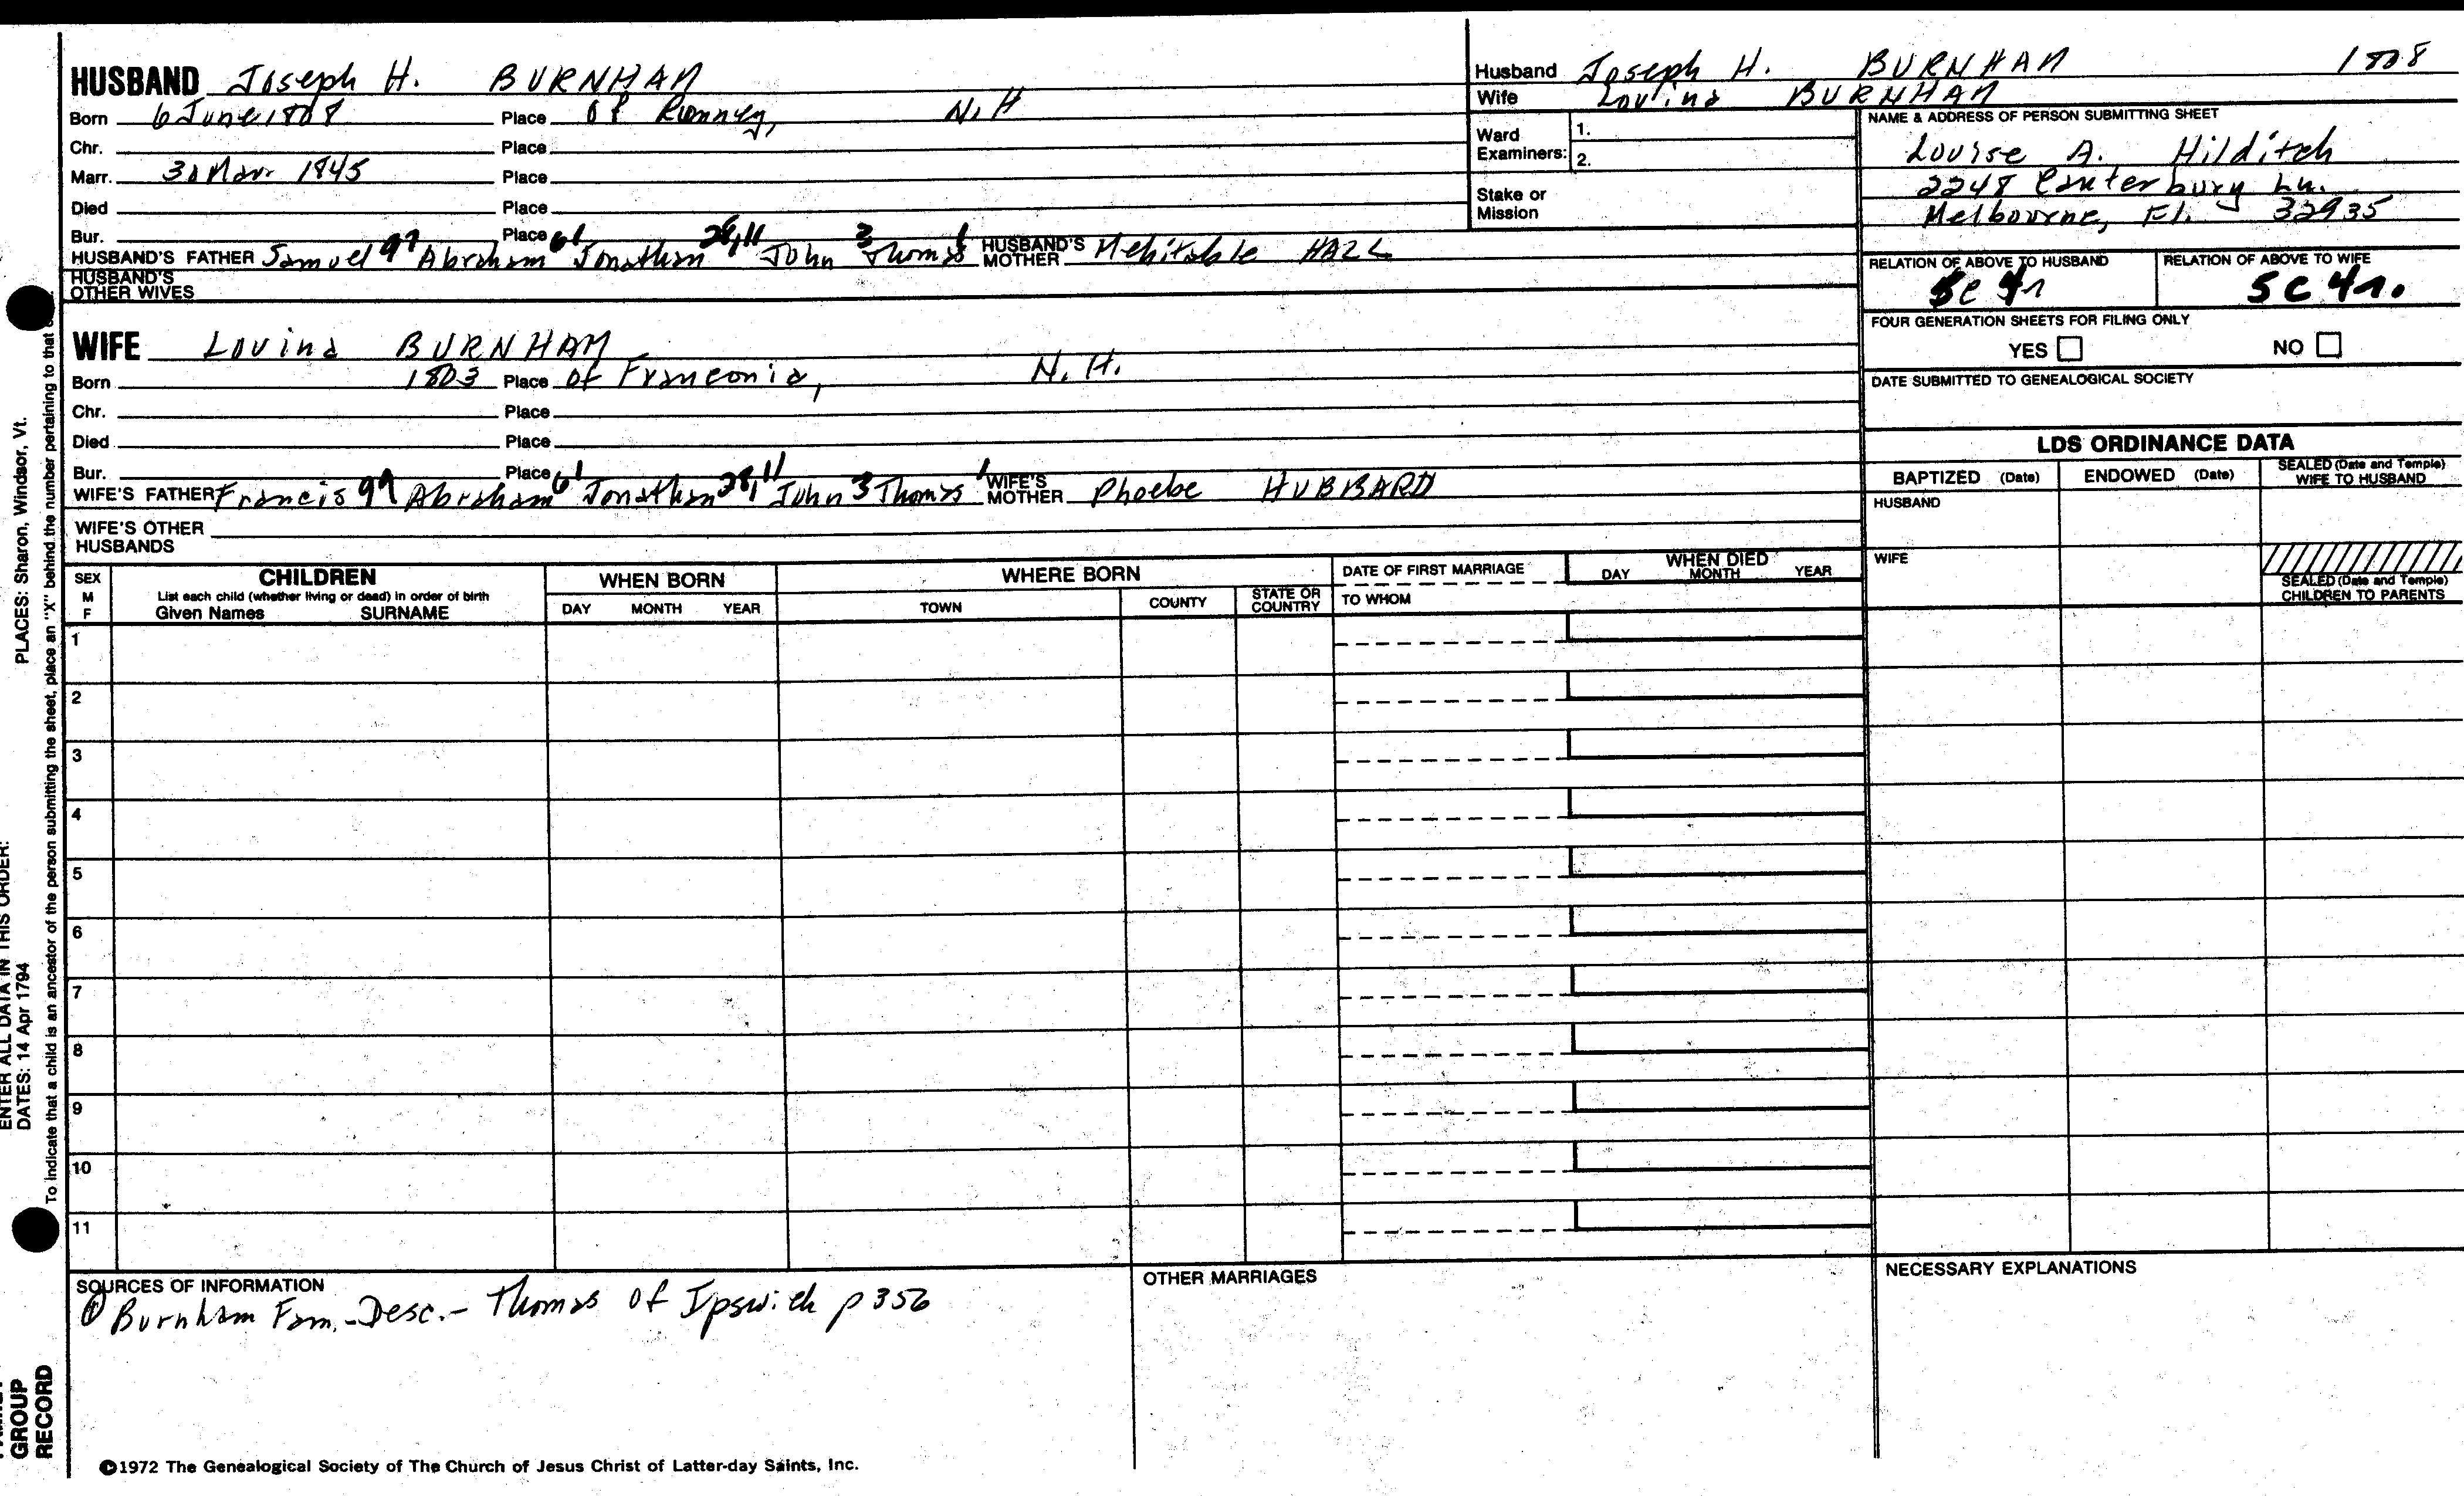 HUSBAND Joseph H. BURNHAM
Born 6 June 1808 Place of Rumney, N.H
Chr. Place
Marr. Mar 1845 Place
Died Place
Bur. Place
HUSBAND'S FATHER Samuel 97 Abraham 61 Jonathan John 3 Thomas 1 HUSBAND'S MOTHER Mehitable HALL
HUSBAND'S OTHER WIVES
Husband Joseph H. BURNHAM 1808
Wife Lovina BURNHAM
Ward Examiners: 1.
2.
Stake or Mission
NAME & ADDRESS OF PERSON SUBMITTING SHEET
Louise A. Hilditch
2248 Canterbury Ln.
Melbourne, Fl. 32935
RELATION OF ABOVE TO HUSBAND RELATION OF ABOVE TO WIFE
5C 4r.
FOUR GENERATION SHEETS FOR FILING ONLY
YES NO
DATE SUBMITTED TO GENEALOGICAL SOCIETY
WIFE Lovina BURNHAM
Born 1803 Place of Franconia, N.H.
Chr. Place
Died Place
Bur. Place
WIFE'S FATHER Francis 97 Abraham 61 Jonathan John 3 Thomas 1 WIFE'S MOTHER Phoebe HUBBARD
WIFE'S OTHER HUSBANDS
LDS ORDINANCE DATA
BAPTIZED (Date) ENDOWED (Date) SEALED (Date and Temple) WIFE TO HUSBAND
HUSBAND
WIFE
SEALED (Date and Temple) CHILDREN TO PARENTS
SEX M F
CHILDREN
List each child (whether living or dead) in order of birth
Given Names SURNAME
WHEN BORN
DAY MONTH YEAR
WHERE BORN
TOWN COUNTY STATE OR COUNTRY
DATE OF FIRST MARRIAGE
TO WHOM
WHEN DIED
DAY MONTH YEAR
1
2
3
4
5
6
7
8
9
10
11
SOURCES OF INFORMATION
① Burnham Fam.-Desc.- Thomas of Ipswich p 356
OTHER MARRIAGES
NECESSARY EXPLANATIONS
©1972 The Genealogical Society of The Church of Jesus Christ of Latter-day Saints, Inc.
ENTER ALL DATA IN THIS ORDER:
DATES: 14 Apr 1794
PLACES: Sharon, Windsor, Vt.
To indicate that a child is an ancestor of the person submitting the sheet, place an "X" behind the number pertaining to that
GROUP
RECORD